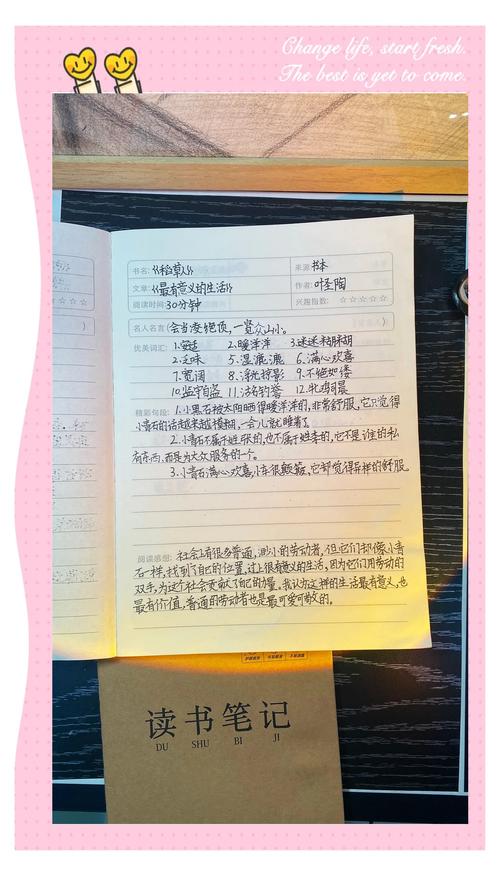 Change life, start fresh.
The best is yet to come.
书名:《稻草人》 来源:书本
文章:《最有意义的生活》 作者:叶圣陶
阅读时间:30分钟 兴趣指数:☆☆☆☆☆
名人名言(会当凌绝顶,一览众山小。)
优美词汇:1.安适 2.暖洋洋 3.迷迷糊糊
2.乏味 5.湿漉漉 6.满心欢喜
7.宽阔 8.浮光掠影 9.不绝如缕
10.监守自盗 11.沽名钓誉 12.牝鸡司晨
精彩句段:1.小黑石被太阳晒得暖洋洋的,非常舒服,它只觉得
小青石的话越来越模糊,一会儿就睡着了
2.小青石不属于姓张的,也不属于姓李的,它不是谁的私
有东西,而是为大众服务的一个。
3.小青石满心欢喜,小车很颠簸,它却觉得异样的舒服。
阅读感想:社会上有很多普通,渺小的劳动者,但它们却像小青
石一样,找到了自己的位置,过上很有意义的生活,因为他们用劳动的
双手,为这个社会贡献了自己的力量。我认为这样的生活最有意义,也
最有价值,普通的劳动者也是最可爱可敬的。
读书笔记
DU SHU BI JI